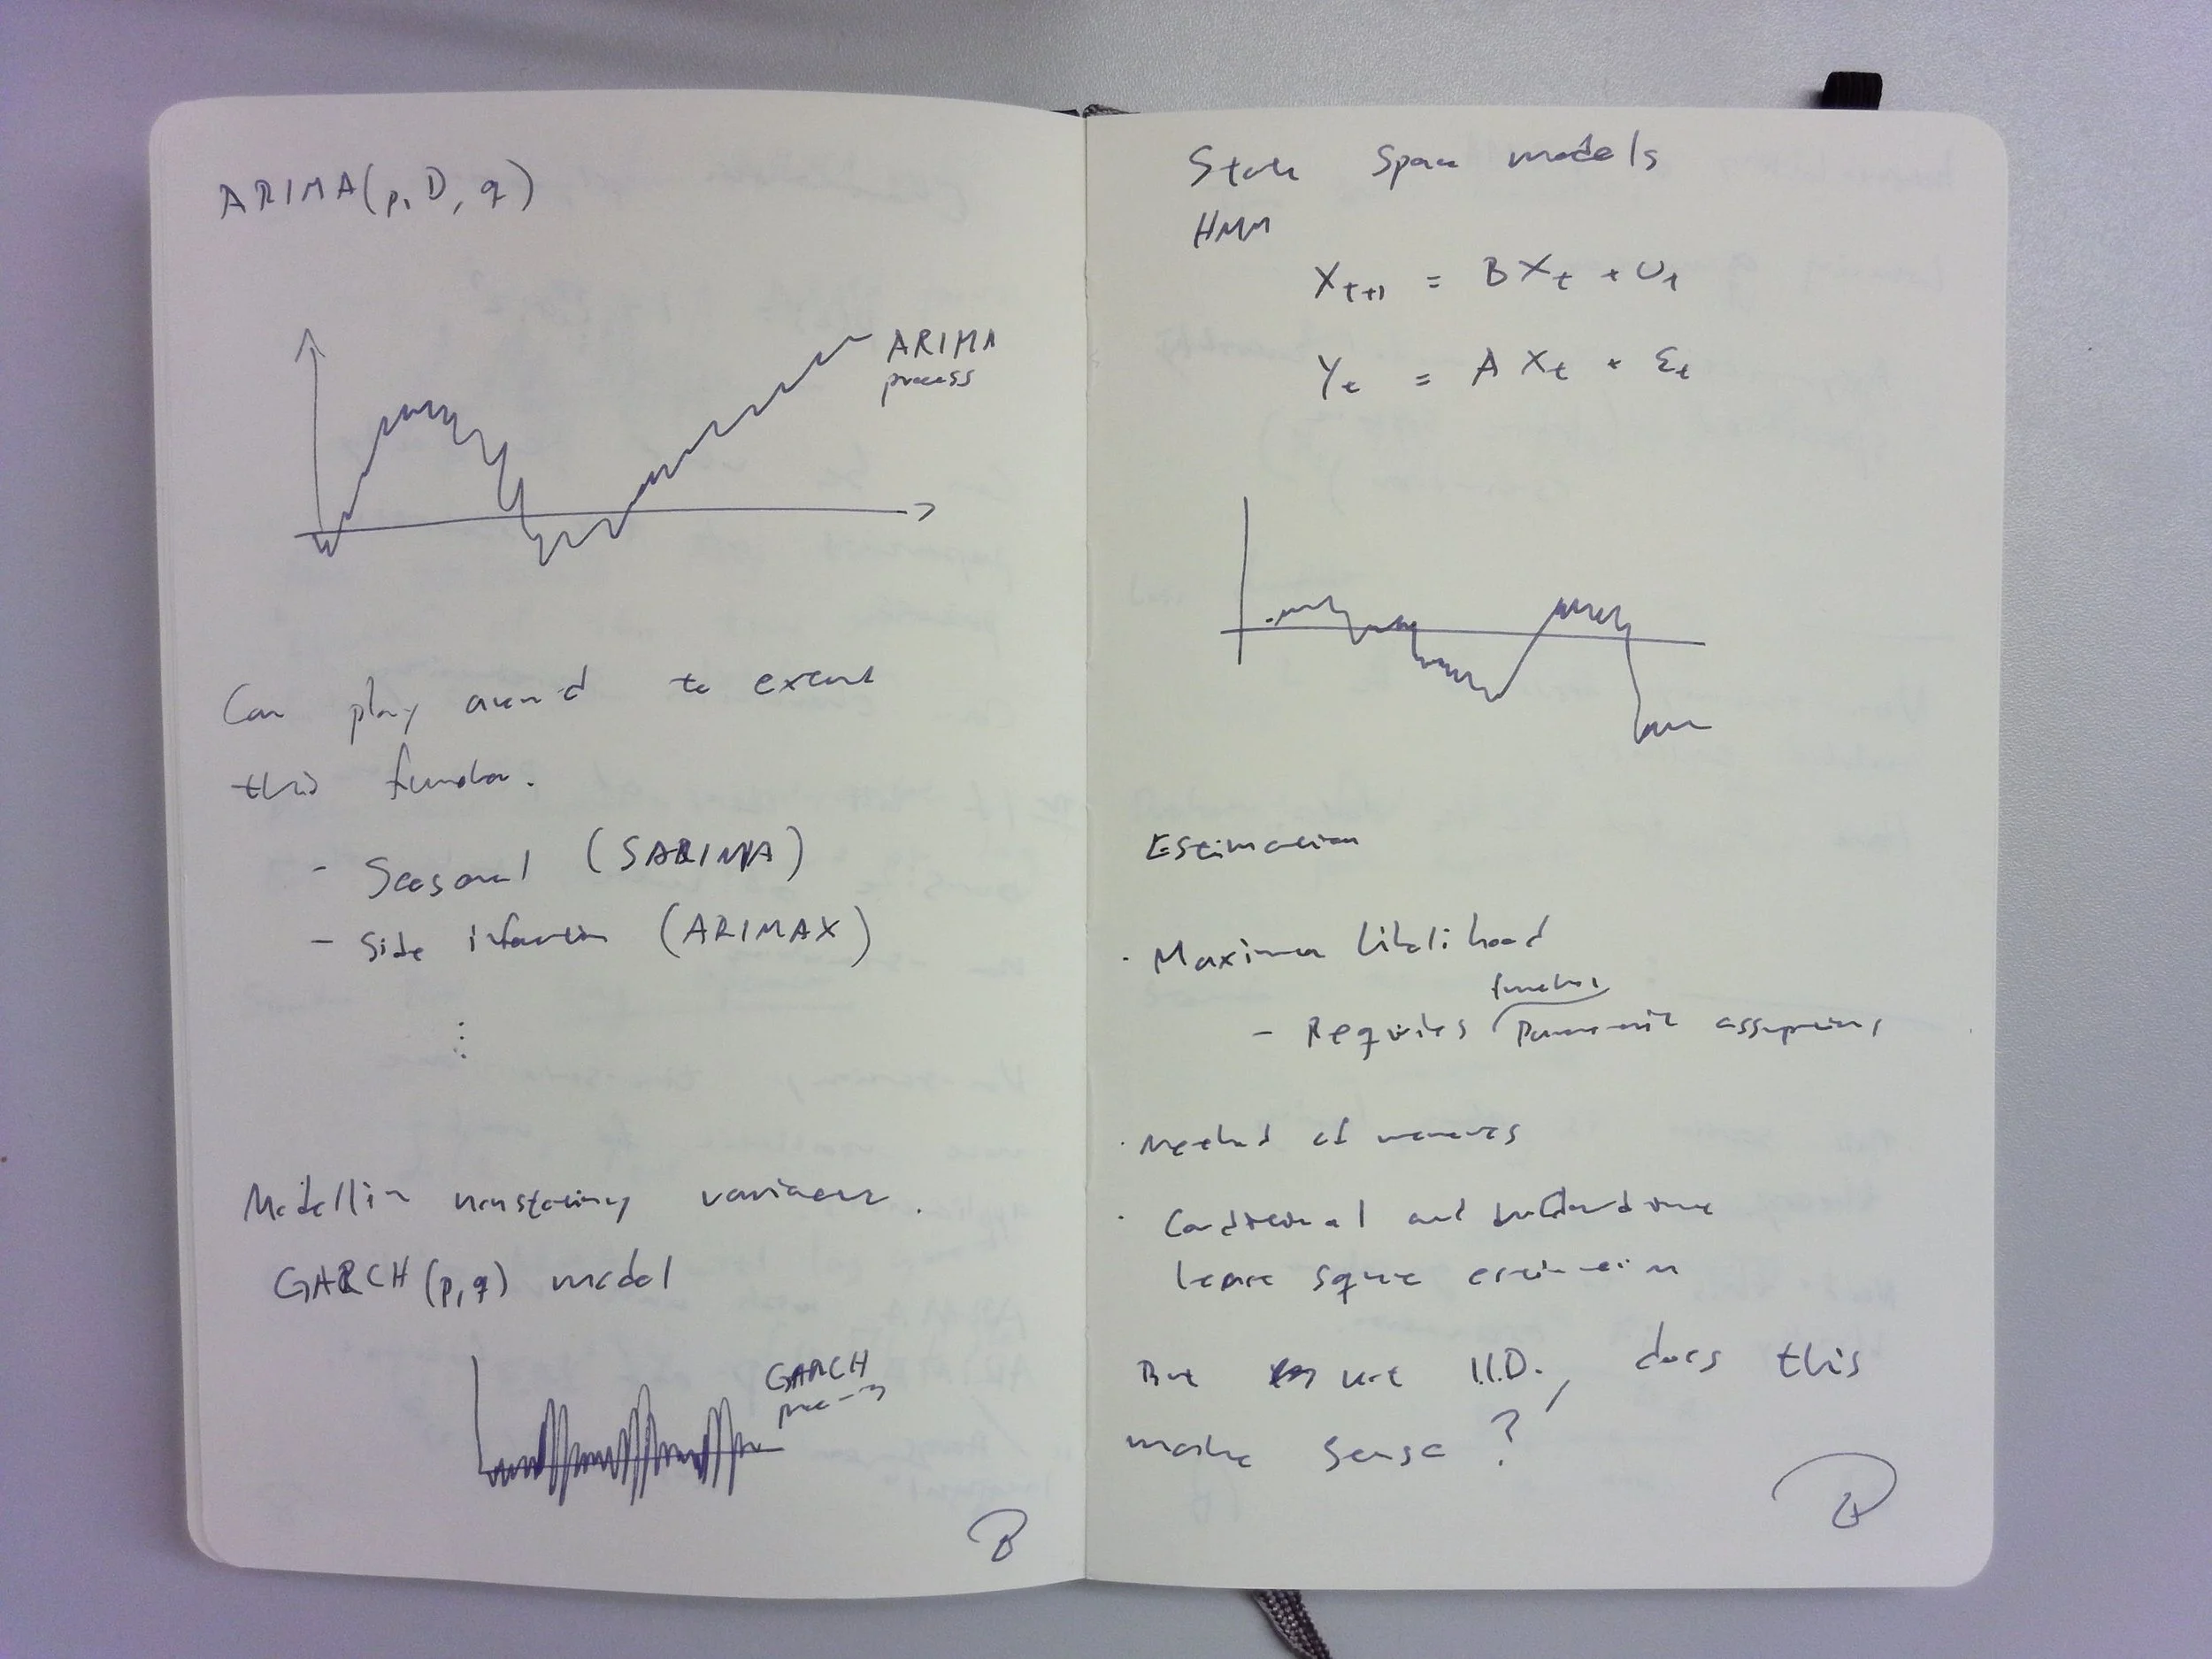 ARIMA(p, D, q)
ARIMA
process
Can play around to extend
this function.
- Seasonal (SARIMA)
- Side information (ARIMAX)
⋮
Modellin nonstationary variance.
GARCH(p,q) model
GARCH
process
State Space models
HMM
X_{t+1} = B X_t + U_t
Y_t = A X_t + ε_t
Estimation
· Maximum likelihood
function
- Requires Parametric assumptions
· Method of moments
· Conditional and unconditional
least square estimation
But not I.I.D., does this
make sense?